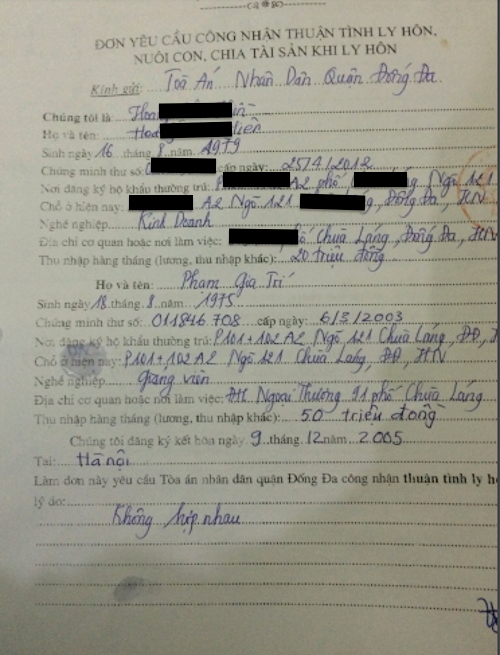 ĐƠN YÊU CẦU CÔNG NHẬN THUẬN TÌNH LY HÔN,
NUÔI CON, CHIA TÀI SẢN KHI LY HÔN
Kính gửi: Toà Án Nhân Dân Quận Đống Đa
Chúng tôi là:
Họ và tên:
Sinh ngày 16 tháng 8 năm 1979
Chứng minh thư số: cấp ngày: 25/4/2012
Nơi đăng ký hộ khẩu thường trú: A2 phố Ngõ 121
Chỗ ở hiện nay: A2 Ngõ 121 Đống Đa, HN
Nghề nghiệp Kinh Doanh
Địa chỉ cơ quan hoặc nơi làm việc: Chùa Láng, Đống Đa, HN
Thu nhập hàng tháng (lương, thu nhập khác): 20 triệu đồng
Họ và tên: Phạm Gia Trí
Sinh ngày 18 tháng 8 năm 1975
Chứng minh thư số: 011846.708 cấp ngày: 6/3/2003
Nơi đăng ký hộ khẩu thường trú: P101+102 A2 Ngõ 121 Chùa Láng, ĐĐ,
Chỗ ở hiện nay: P101+102 A2 Ngõ 121 Chùa Láng, ĐĐ, HN
Nghề nghiệp Giảng viên
Địa chỉ cơ quan hoặc nơi làm việc: ĐH Ngoại Thương 91 phố Chùa Láng
Thu nhập hàng tháng (lương, thu nhập khác): 50 triệu đồng
Chúng tôi đăng ký kết hôn ngày 9 tháng 12 năm 2005
Tại: Hà nội
Làm đơn này yêu cầu Tòa án nhân dân quận Đống Đa công nhận thuận tình ly
lý do:
Không hợp nhau